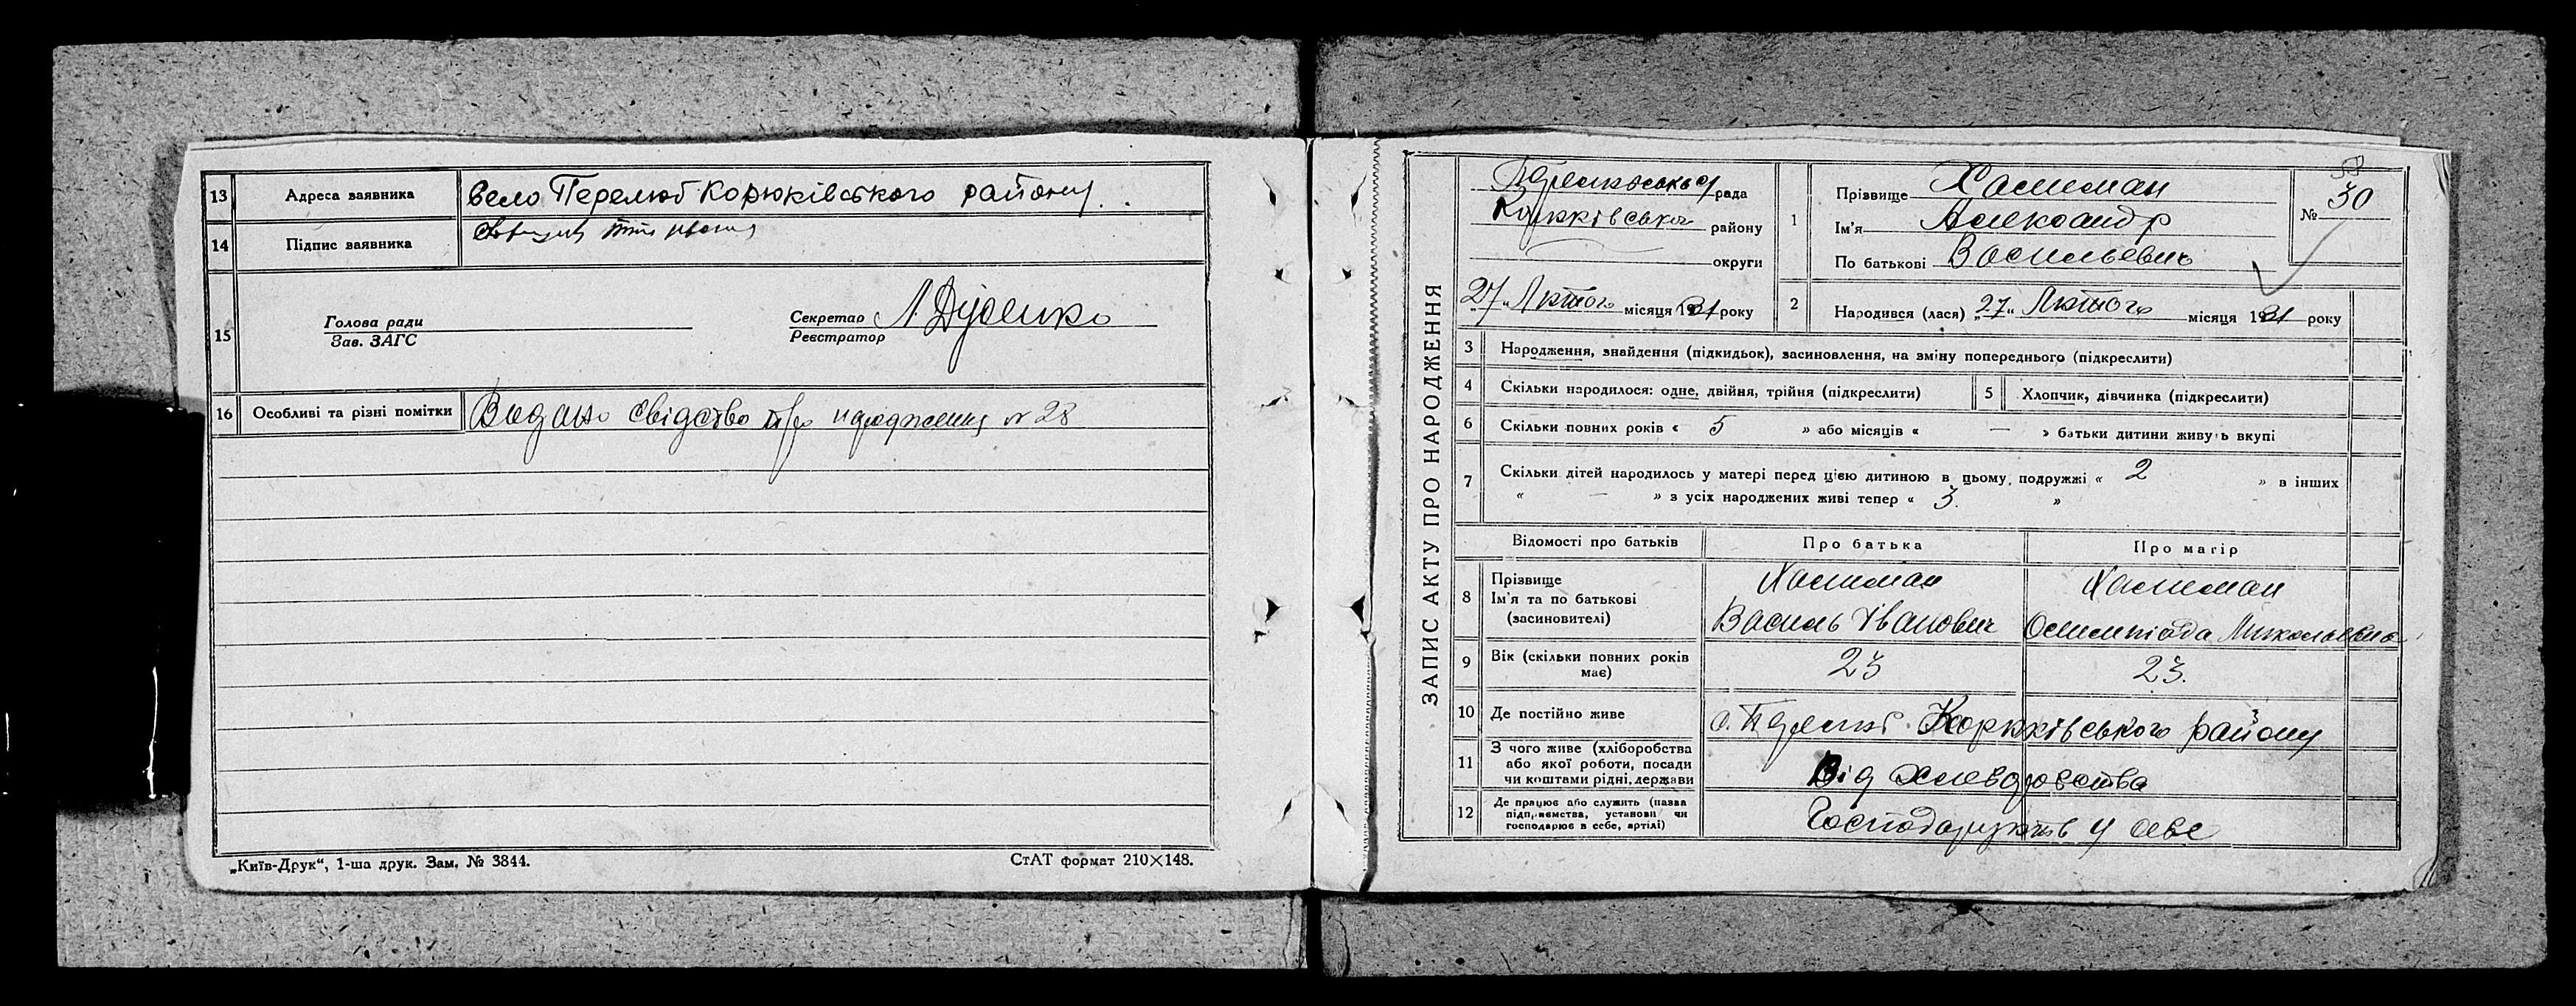 13 Адреса заявника село Перелюб Корюківського району.
14 Підпис заявника
15 Голова ради Секретар Л. Дуденко
Зав. ЗАГС Реєстратор
16 Особливі та різні помітки Видано свідство про народження № 28
„Київ-Друк“, 1-ша друк. Зам. № 3844. СтАТ формат 210×148.
ЗАПИС АКТУ ПРО НАРОДЖЕННЯ
Перелюбська рада
Корюківського району
округи
27 „Лютого місяця 1931 року
1 Прізвище Халиман
Ім'я Александр
По батькові Васильевич
№ 30
2 Народився (лася) „27“ Лютого місяця 1931 року
3 Народження, знайдення (підкидьок), засиновлення, на зміну попереднього (підкреслити)
4 Скільки народилося: одне, двійня, трійня (підкреслити) 5 Хлопчик, дівчинка (підкреслити)
6 Скільки повних років « 5 » або місяців « — » батьки дитини живуть вкупі
7 Скільки дітей народилось у матері перед цією дитиною в цьому подружжі « 2 » в інших
« — » з усіх народжених живі тепер « 3. »
Відомості про батьків Про батька Про матір
8 Прізвище Халиман Халиман
Ім'я та по батькові
(засиновителі) Василь Іванович Олимпіада Микольевна
9 Вік (скільки повних років має) 23 23.
10 Де постійно живе с. Перелюб Корюківського району
11 З чого живе (хліборобства
або якої роботи, посади
чи коштами рідні, держави Від хлеборобства
12 Де працює або служить (назва
підприємства, установи чи
господарює в себе, артілі) Господарують у себе